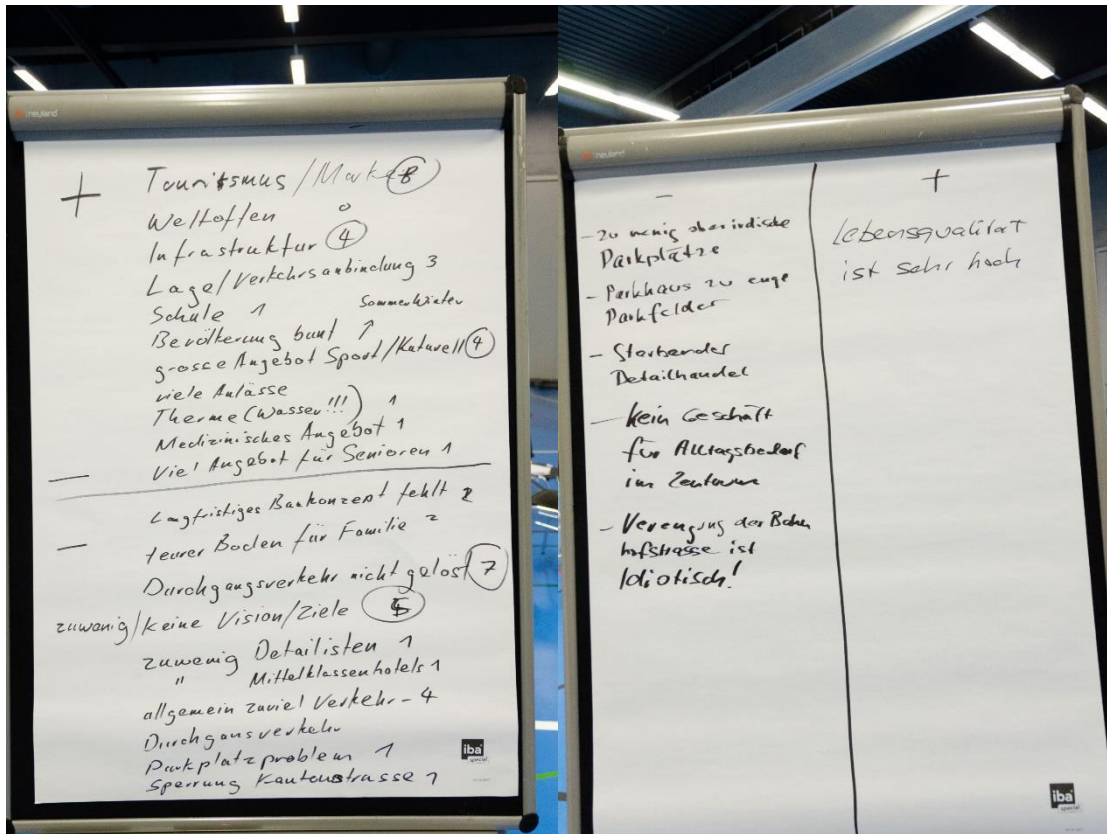 neuland
+ Tourismus/Marke 8
Weltoffen 0
Infrastruktur 4
Lage/Verkehrsanbindung 3
Schule 1 Sommer Winter
Bevölkerung bunt 1
grosse Angebot Sport/Kuturell 4
viele Anlässe
Therme (Wasser!!!) 1
Medizinisches Angebot 1
Viel Angebot für Senioren 1
—
Langfristiges Baukonzept fehlt 2
— teurer Boden für Familie 2
Durchgangsverkehr nicht gelöst 7
zuwenig/keine Vision/Ziele
zuwenig Detailisten 1
" Mittelklassenhotels 1
allgemein zuviel Verkehr - 4
Durchgansverkehr
Parkplatzproblem 1
Sperrung Kantonstrasse 1
iba
special
neuland
–
- zu wenig oberirdische
Parkplätze
- Parkhaus zu enge
Parkfelder
- Sterbender
Detailhandel
- kein Geschäft
für Alltagsbedarf
im Zentrum
- Verengung der Bahn
hofstrasse ist
Idiotisch!
+
Lebensqualität
ist sehr hoch
iba
special